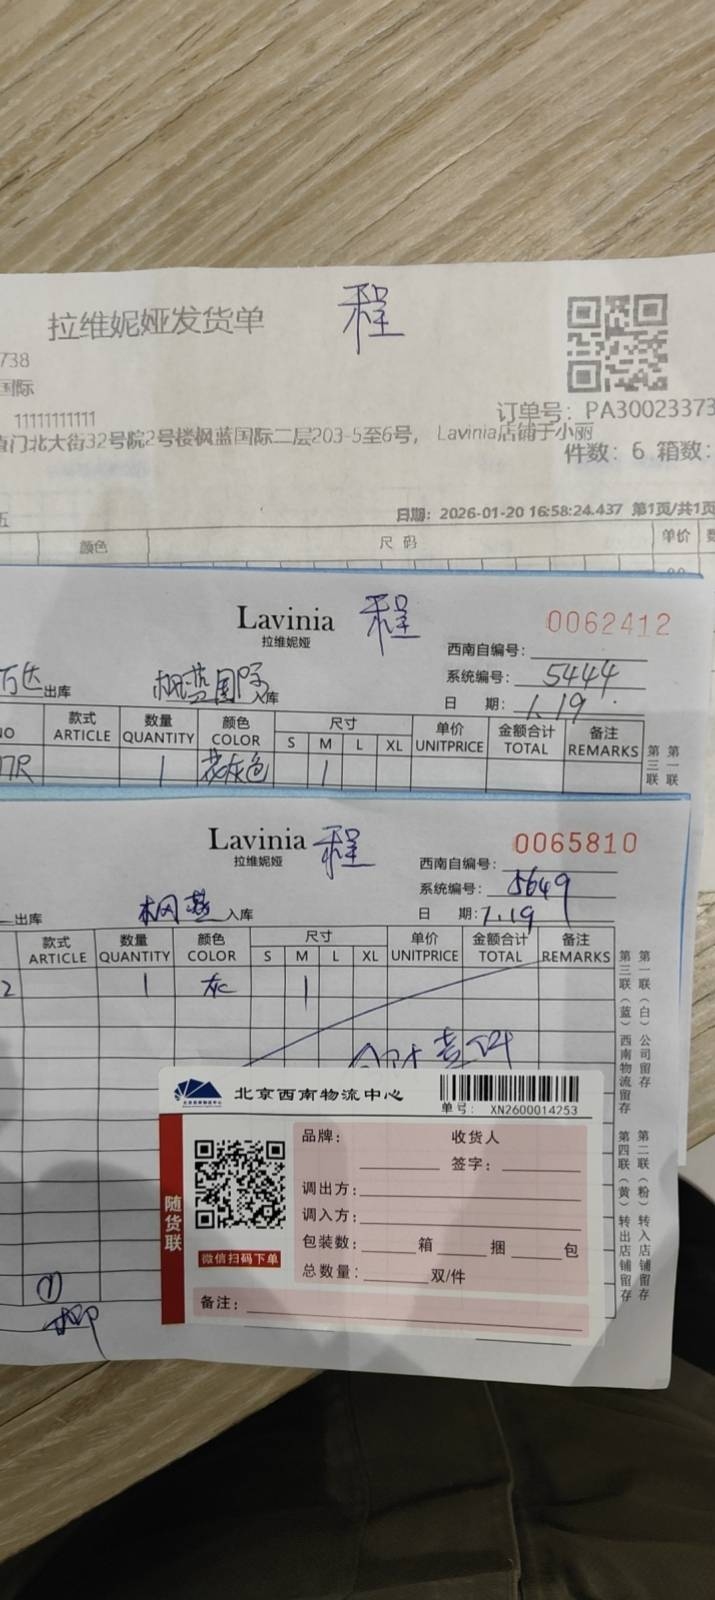 拉维妮娅发货单 程
738
国际
11111111111
订单号：PA30023373
直门北大街32号院2号楼枫蓝国际二层203-5至6号， Lavinia店铺于小丽
件数：6 箱数：
五
日期：2026-01-20 16:58:24.437 第1页/共1页
颜色 尺 码 单价 数
Lavinia 程 0062412
拉维妮娅
西南自编号：
万达出库 枫蓝国际入库 系统编号：5444
日 期：1.19
NO 款式 ARTICLE 数量 QUANTITY 颜色 COLOR 尺寸 S M L XL 单价 UNITPRICE 金额合计 TOTAL 备注 REMARKS
1 花灰色 1
第三联 第一联
Lavinia 程 0065810
拉维妮娅
西南自编号：
系统编号：5649
出库 枫蓝入库 日 期：1.19
款式 ARTICLE 数量 QUANTITY 颜色 COLOR 尺寸 S M L XL 单价 UNITPRICE 金额合计 TOTAL 备注 REMARKS
2 1 灰 1
第三联（蓝）西南物流留存
第一联（白）公司留存
第四联（黄）转出店铺留存
第二联（粉）转入店铺留存
北京西南物流中心
单号： XN2600014253
随货联
微信扫码下单
品牌： 收货人
签字：
调出方：
调入方：
包装数： 箱 捆 包
总数量： 双/件
备注：
①